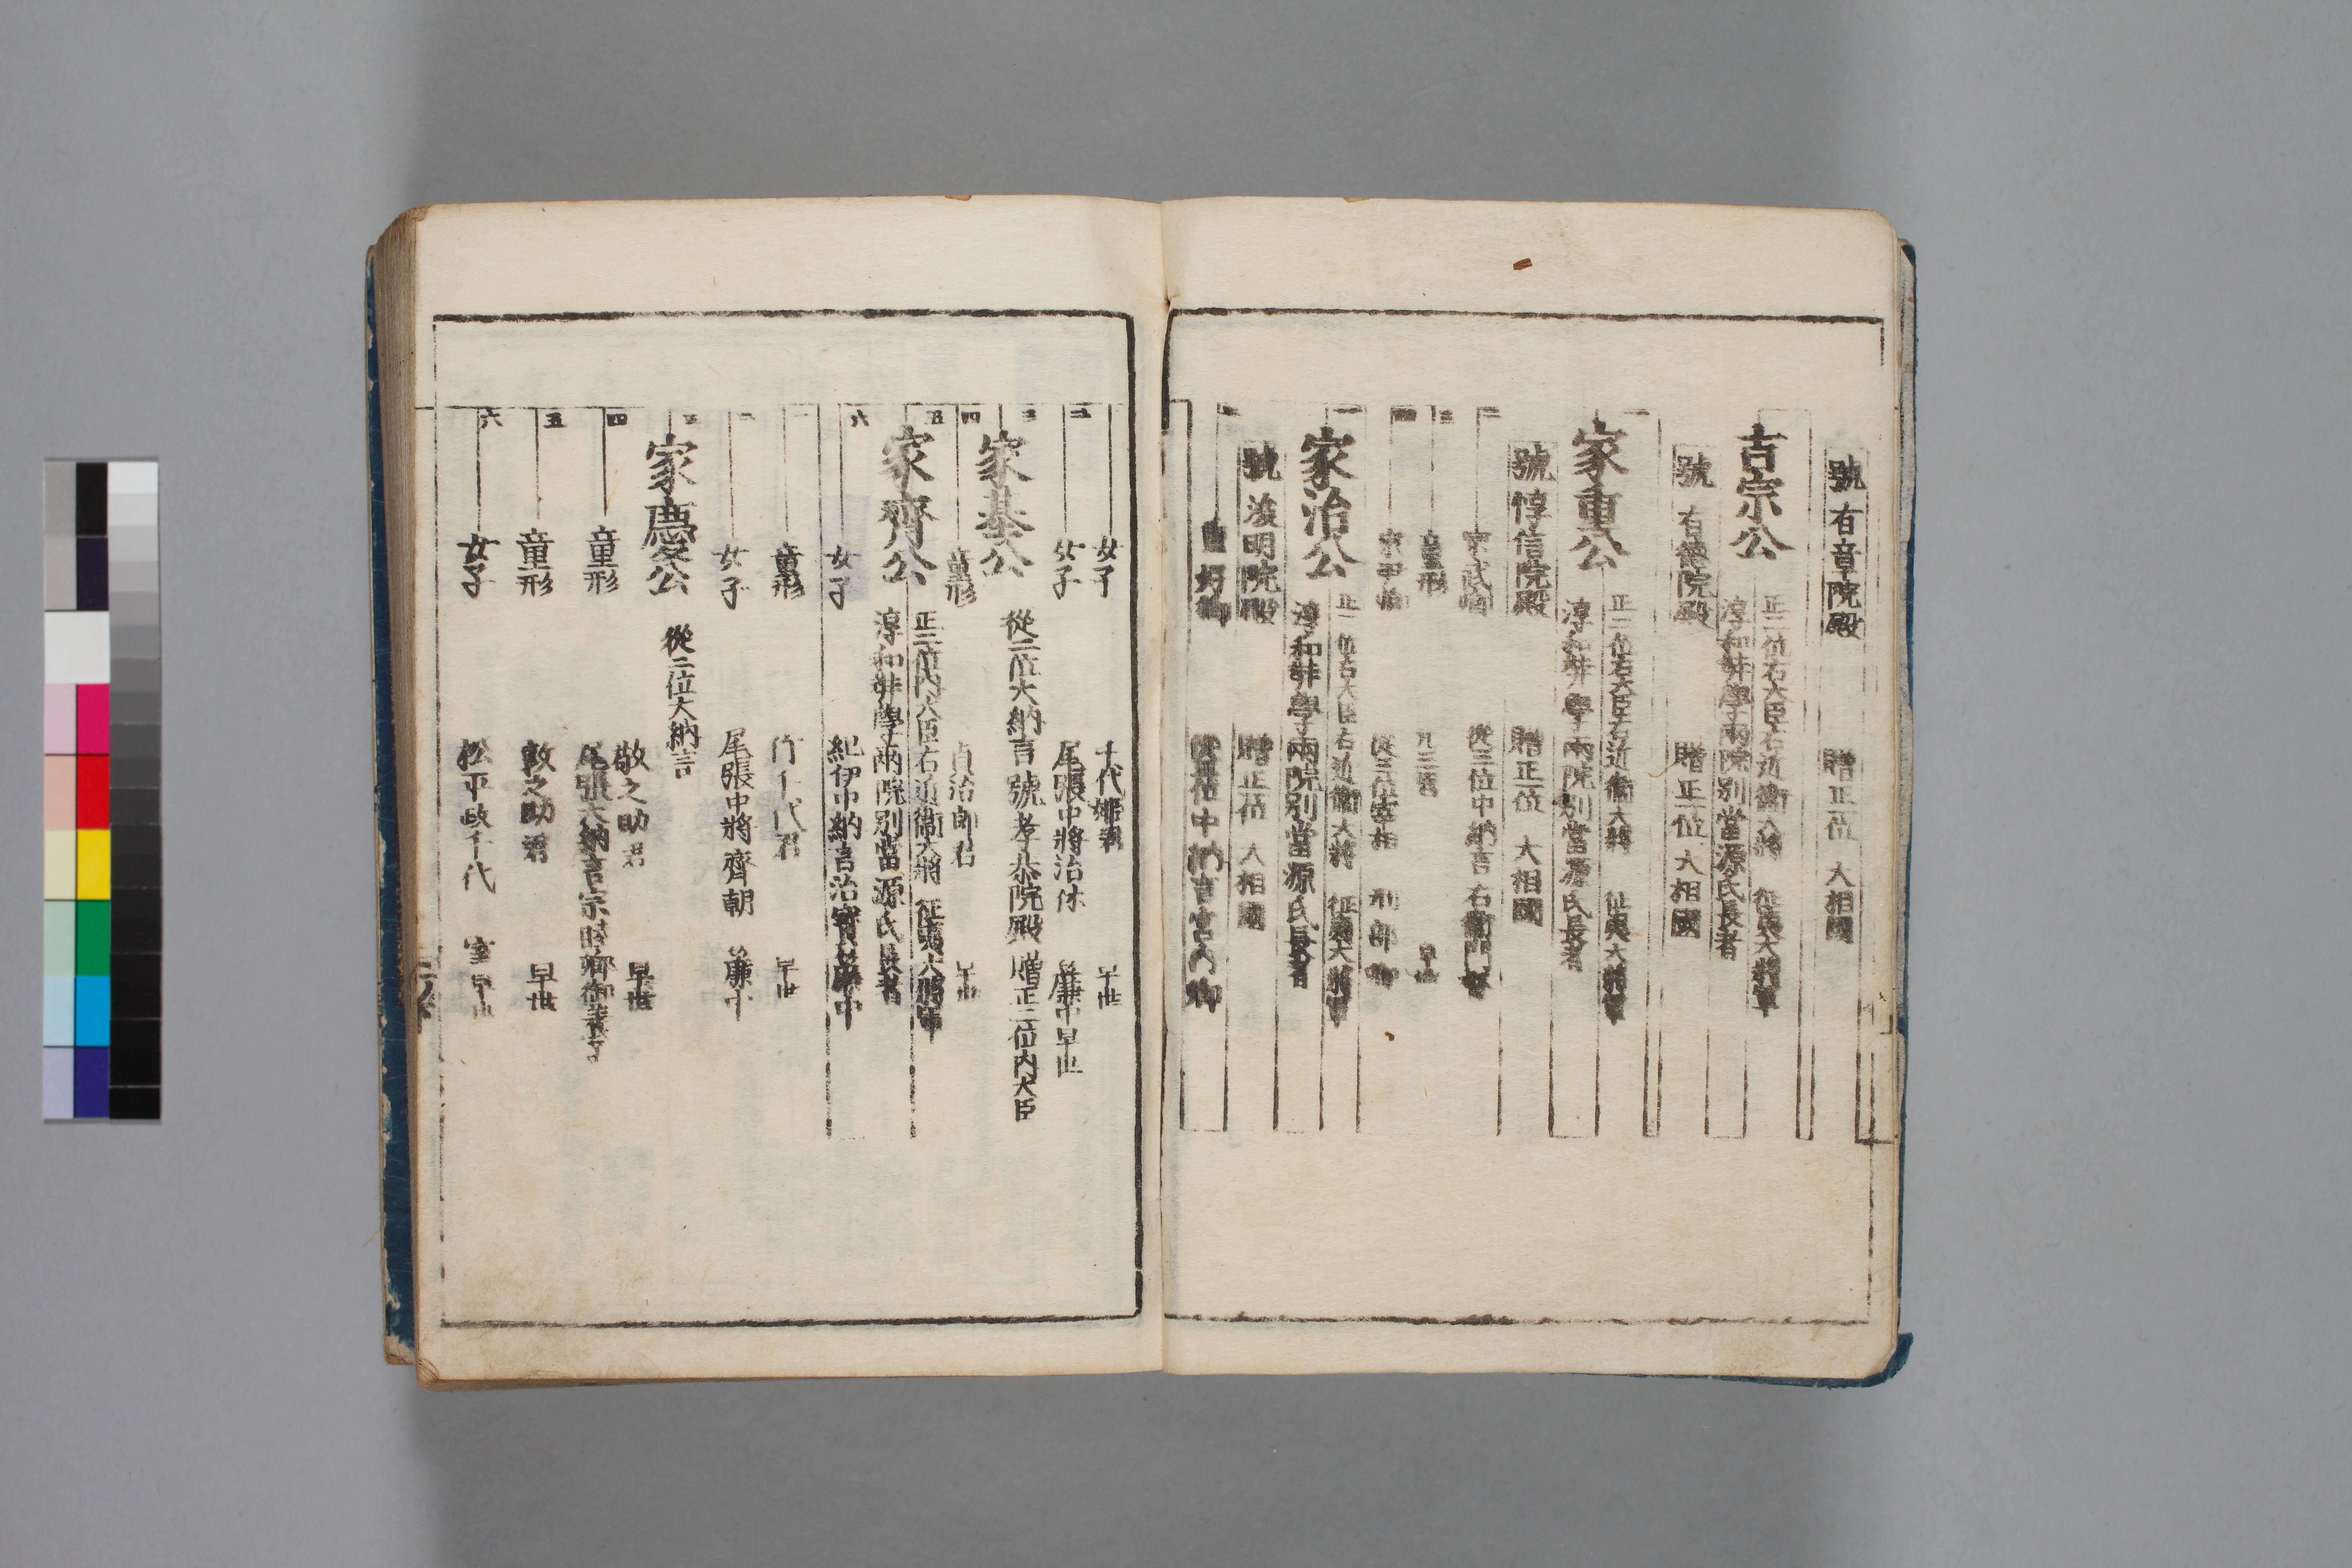 號 有章院殿 贈正一位 大相國
吉宗公 正二位右大臣右近衞大將 征夷大將軍
淳和奬學兩院別當源氏長者
號 有德院殿 贈正一位 大相國
一
家重公 正二位右大臣右近衞大將 征夷大將軍
淳和奬學兩院別當源氏長者
號 惇信院殿 贈正一位 大相國
二 宗武卿 從三位中納言右衞門督
三 童形 早世
四 宗尹卿 從三位宰相 刑部卿
一
家治公 正二位右大臣右近衞大將 征夷大將軍
淳和奬學兩院別當源氏長者
號 浚明院殿 贈正一位 大相國
二 重好卿 從三位中納言宮内卿
女子 千代姫君 早世
二 女子 尾張中將治休 簾中早世
三 家基公 從二位大納言 號孝恭院殿 贈正二位内大臣
四 童形 貞治郎君 早世
五 家齊公 正二位内大臣右近衞大將 征夷大將軍
淳和奬學兩院別當源氏長者
六 女子 紀伊中納言治寶簾中
一 童形 竹千代君 早世
二 女子 尾張中將齊朝 簾中
三 家慶公 從二位大納言
四 童形 敬之助君 早世
尾張大納言宗睦卿御養子
五 童形 敦之助君 早世
六 女子 松平政千代 室早世